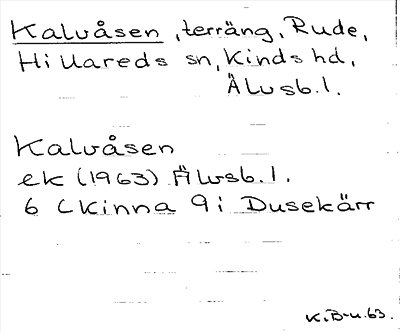 Kalvåsen, terräng, Rude,
Hillareds sn, Kinds hd,
Älvsb. l.
Kalvåsen
ek (1963) Älvsb. l.
6 C Kinna 9 i Dusekärr
K.B-u. 63.